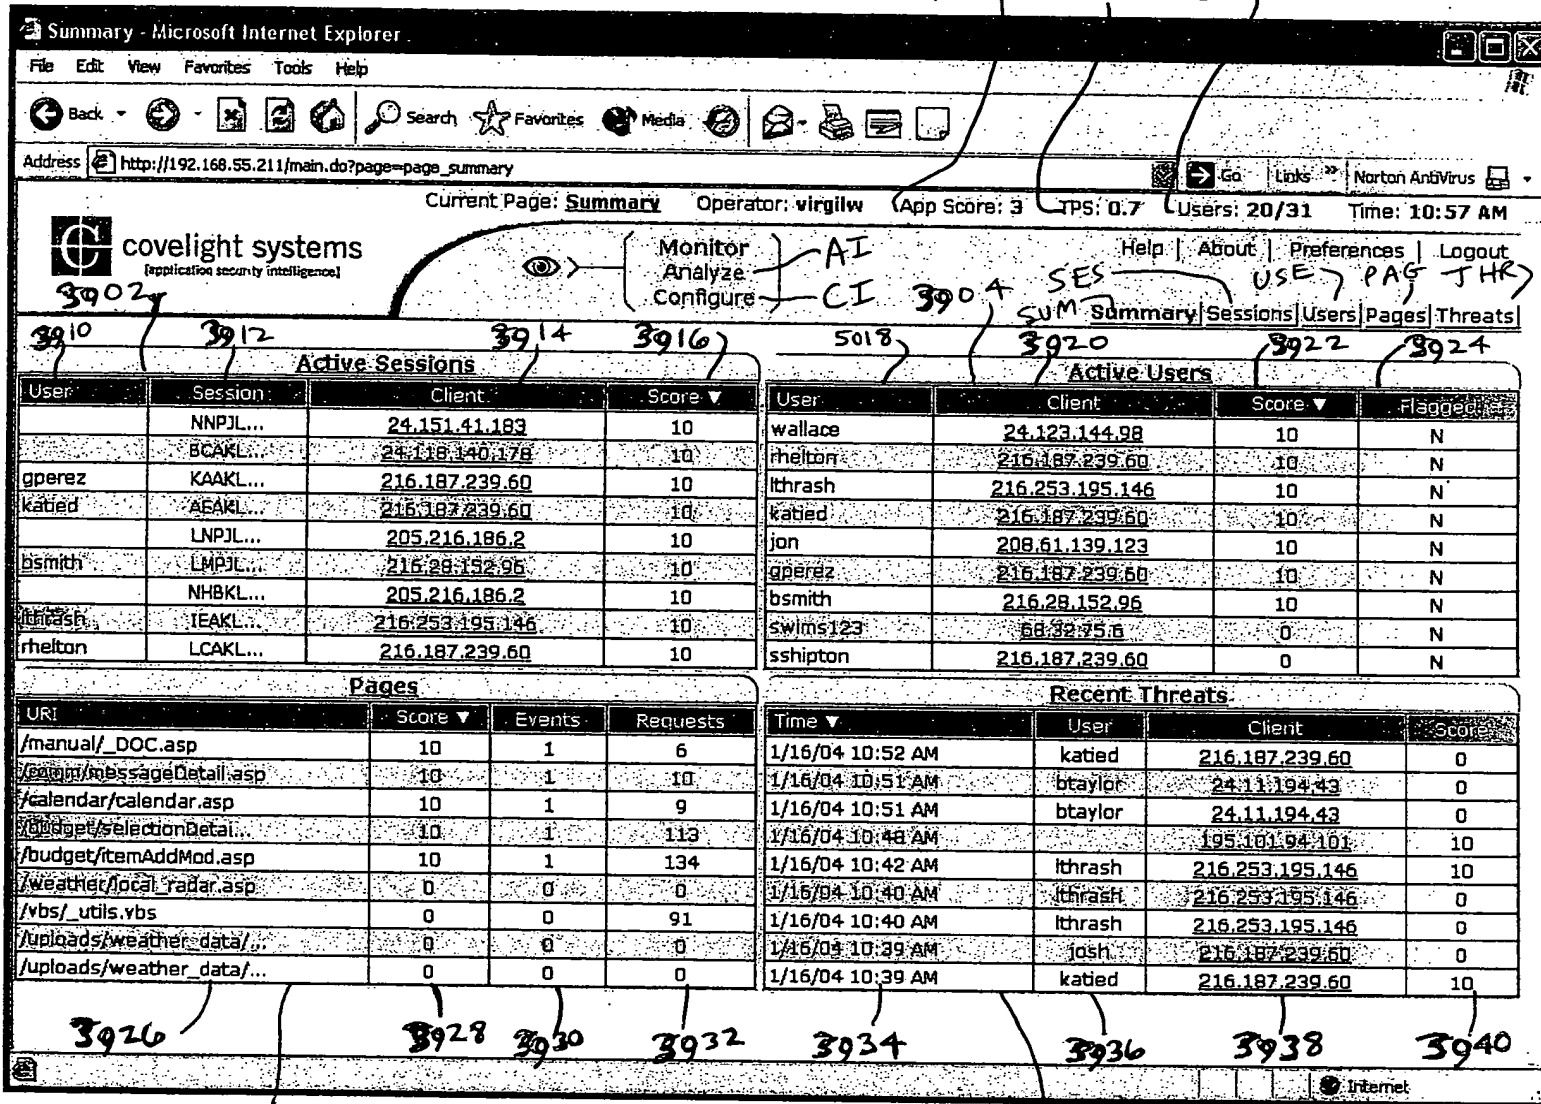 Summary - Microsoft Internet Explorer
File Edit View Favorites Tools Help
Back Search Favorites Media
Address http://192.168.55.211/main.do?page=page_summary Go Links » Norton AntiVirus
Current Page: Summary Operator: virgilw App Score: 3 TPS: 0.7 Users: 20/31 Time: 10:57 AM
covelight systems
[application security intelligence]
Monitor
Analyze AI
Configure CI
Help | About | Preferences | Logout
3902 3904 SES USE PAG THR
SUM Summary|Sessions|Users|Pages|Threats|
3910 3912 3914 3916 5018 3920 3922 3924
Active Sessions
User Session Client Score ▼
NNPJL... 24.151.41.183 10
BCAKL... 24.118.140.178 10
gperez KAAKL... 216.187.239.60 10
katied AEAKL... 216.187.239.60 10
LNPJL... 205.216.186.2 10
bsmith LMPJL... 216.28.152.96 10
NHBKL... 205.216.186.2 10
lthrash IEAKL... 216.253.195.146 10
rhelton LCAKL... 216.187.239.60 10
Active Users
User Client Score ▼ Flagged
wallace 24.123.144.98 10 N
rhelton 216.187.239.60 10 N
lthrash 216.253.195.146 10 N
katied 216.187.239.60 10 N
jon 208.61.139.123 10 N
gperez 216.187.239.60 10 N
bsmith 216.28.152.96 10 N
swims123 68.32.75.6 0 N
sshipton 216.187.239.60 0 N
Pages
URI Score ▼ Events Requests
/manual/_DOC.asp 10 1 6
/comm/messageDetail.asp 10 1 10
/calendar/calendar.asp 10 1 9
/budget/selectionDetai... 10 1 113
/budget/itemAddMod.asp 10 1 134
/weather/local_radar.asp 0 0 0
/vbs/_utils.vbs 0 0 91
/uploads/weather_data/... 0 0 0
/uploads/weather_data/... 0 0 0
Recent Threats
Time ▼ User Client Score
1/16/04 10:52 AM katied 216.187.239.60 0
1/16/04 10:51 AM btaylor 24.11.194.43 0
1/16/04 10:51 AM btaylor 24.11.194.43 0
1/16/04 10:48 AM 195.101.94.101 10
1/16/04 10:42 AM lthrash 216.253.195.146 10
1/16/04 10:40 AM lthrash 216.253.195.146 0
1/16/04 10:40 AM lthrash 216.253.195.146 0
1/16/04 10:39 AM josh 216.187.239.60 0
1/16/04 10:39 AM katied 216.187.239.60 10
3926 3928 3930 3932 3934 3936 3938 3940
Internet